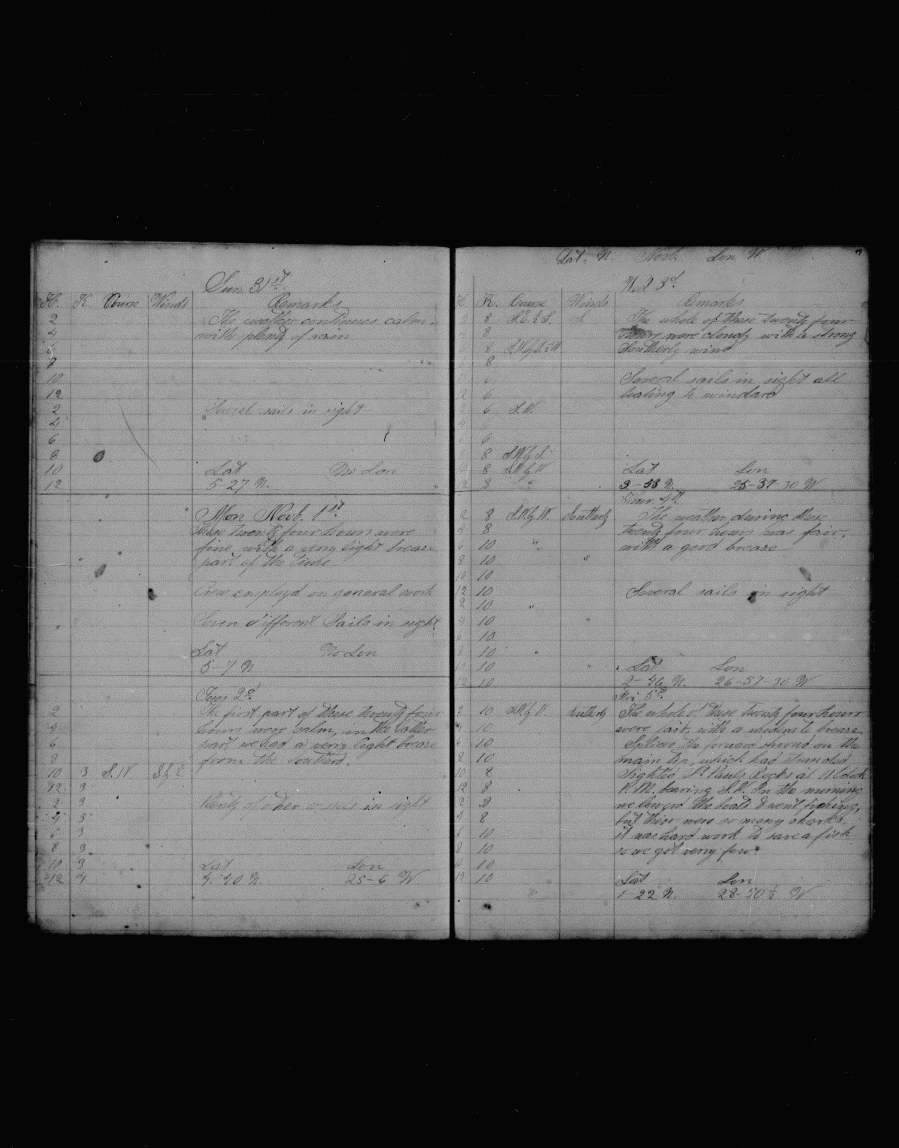 Sun 31st.
H. K Course Winds Remarks
2 The weather continues calm.
4 with plenty of rain
6
8
10
12
2 Several sails in sight
4
6
8
10 Lat No Lon
12 5-27 N.
Mon Novb. 1st.
These twenty four hours were
fine with a very light brease
part of the time
Crew employd on general work
Seven different Sails in sight
Lat No Lon
5-7 N
Tues 2d.
2 The first part of these twenty four
4 hours were calm, in the latter
6 part we had a very light brease
8 from the Southerd.
10 3 S.W S by E
12 3
2 3 Plenty of other vessels in sight
4 3
6 3
8 3
10 3 Lat Lon
12 4 4-40 N. 25-6 W
Lat. N. North Lon W
Wed 3d.
H K. Course Winds Remarks
2 8 S The whole of these twenty four
4 8 hours were cloudy with a strong
6 8 Southerly wind
8 8
10 6 Several sails in sight all
12 6 beating to windard
2 6 S.W.
4 6
6 6
8 8 S.W by S.
10 8 S.W by W Lat Lon
12 8 " 3-38 N. 25-37-30 W
Thur. 4th
2 8 S.W by W. Southerly The weather during these
4 8 twenty four hours was fair,
6 10 " with a good brease
8 10 "
10 10
12 10 Several sails in sight
2 10 "
4 10 "
6 10
8 10 "
10 10 " Lat Lon
12 10 2-46 N. 26-57-30 W
Fri 5th
2 10 S.W by W. Southerly The whole of these twenty four hours
4 10 were fair, with a moderate brease.
6 10 Spliced the forward shroud on the
8 10 main
10 8 Sighted St Pauls Rocks at 11 Oclock
12 8 P.M. baring S.W. In the morning
2 8 we lowered the boats & went fishing,
4 8 but their were so many sharks,
6 10 it was hard work to save a fish
8 10 so we got verry few
10 10
12 10 Lat Lon
1-22 N. 28-50½ W